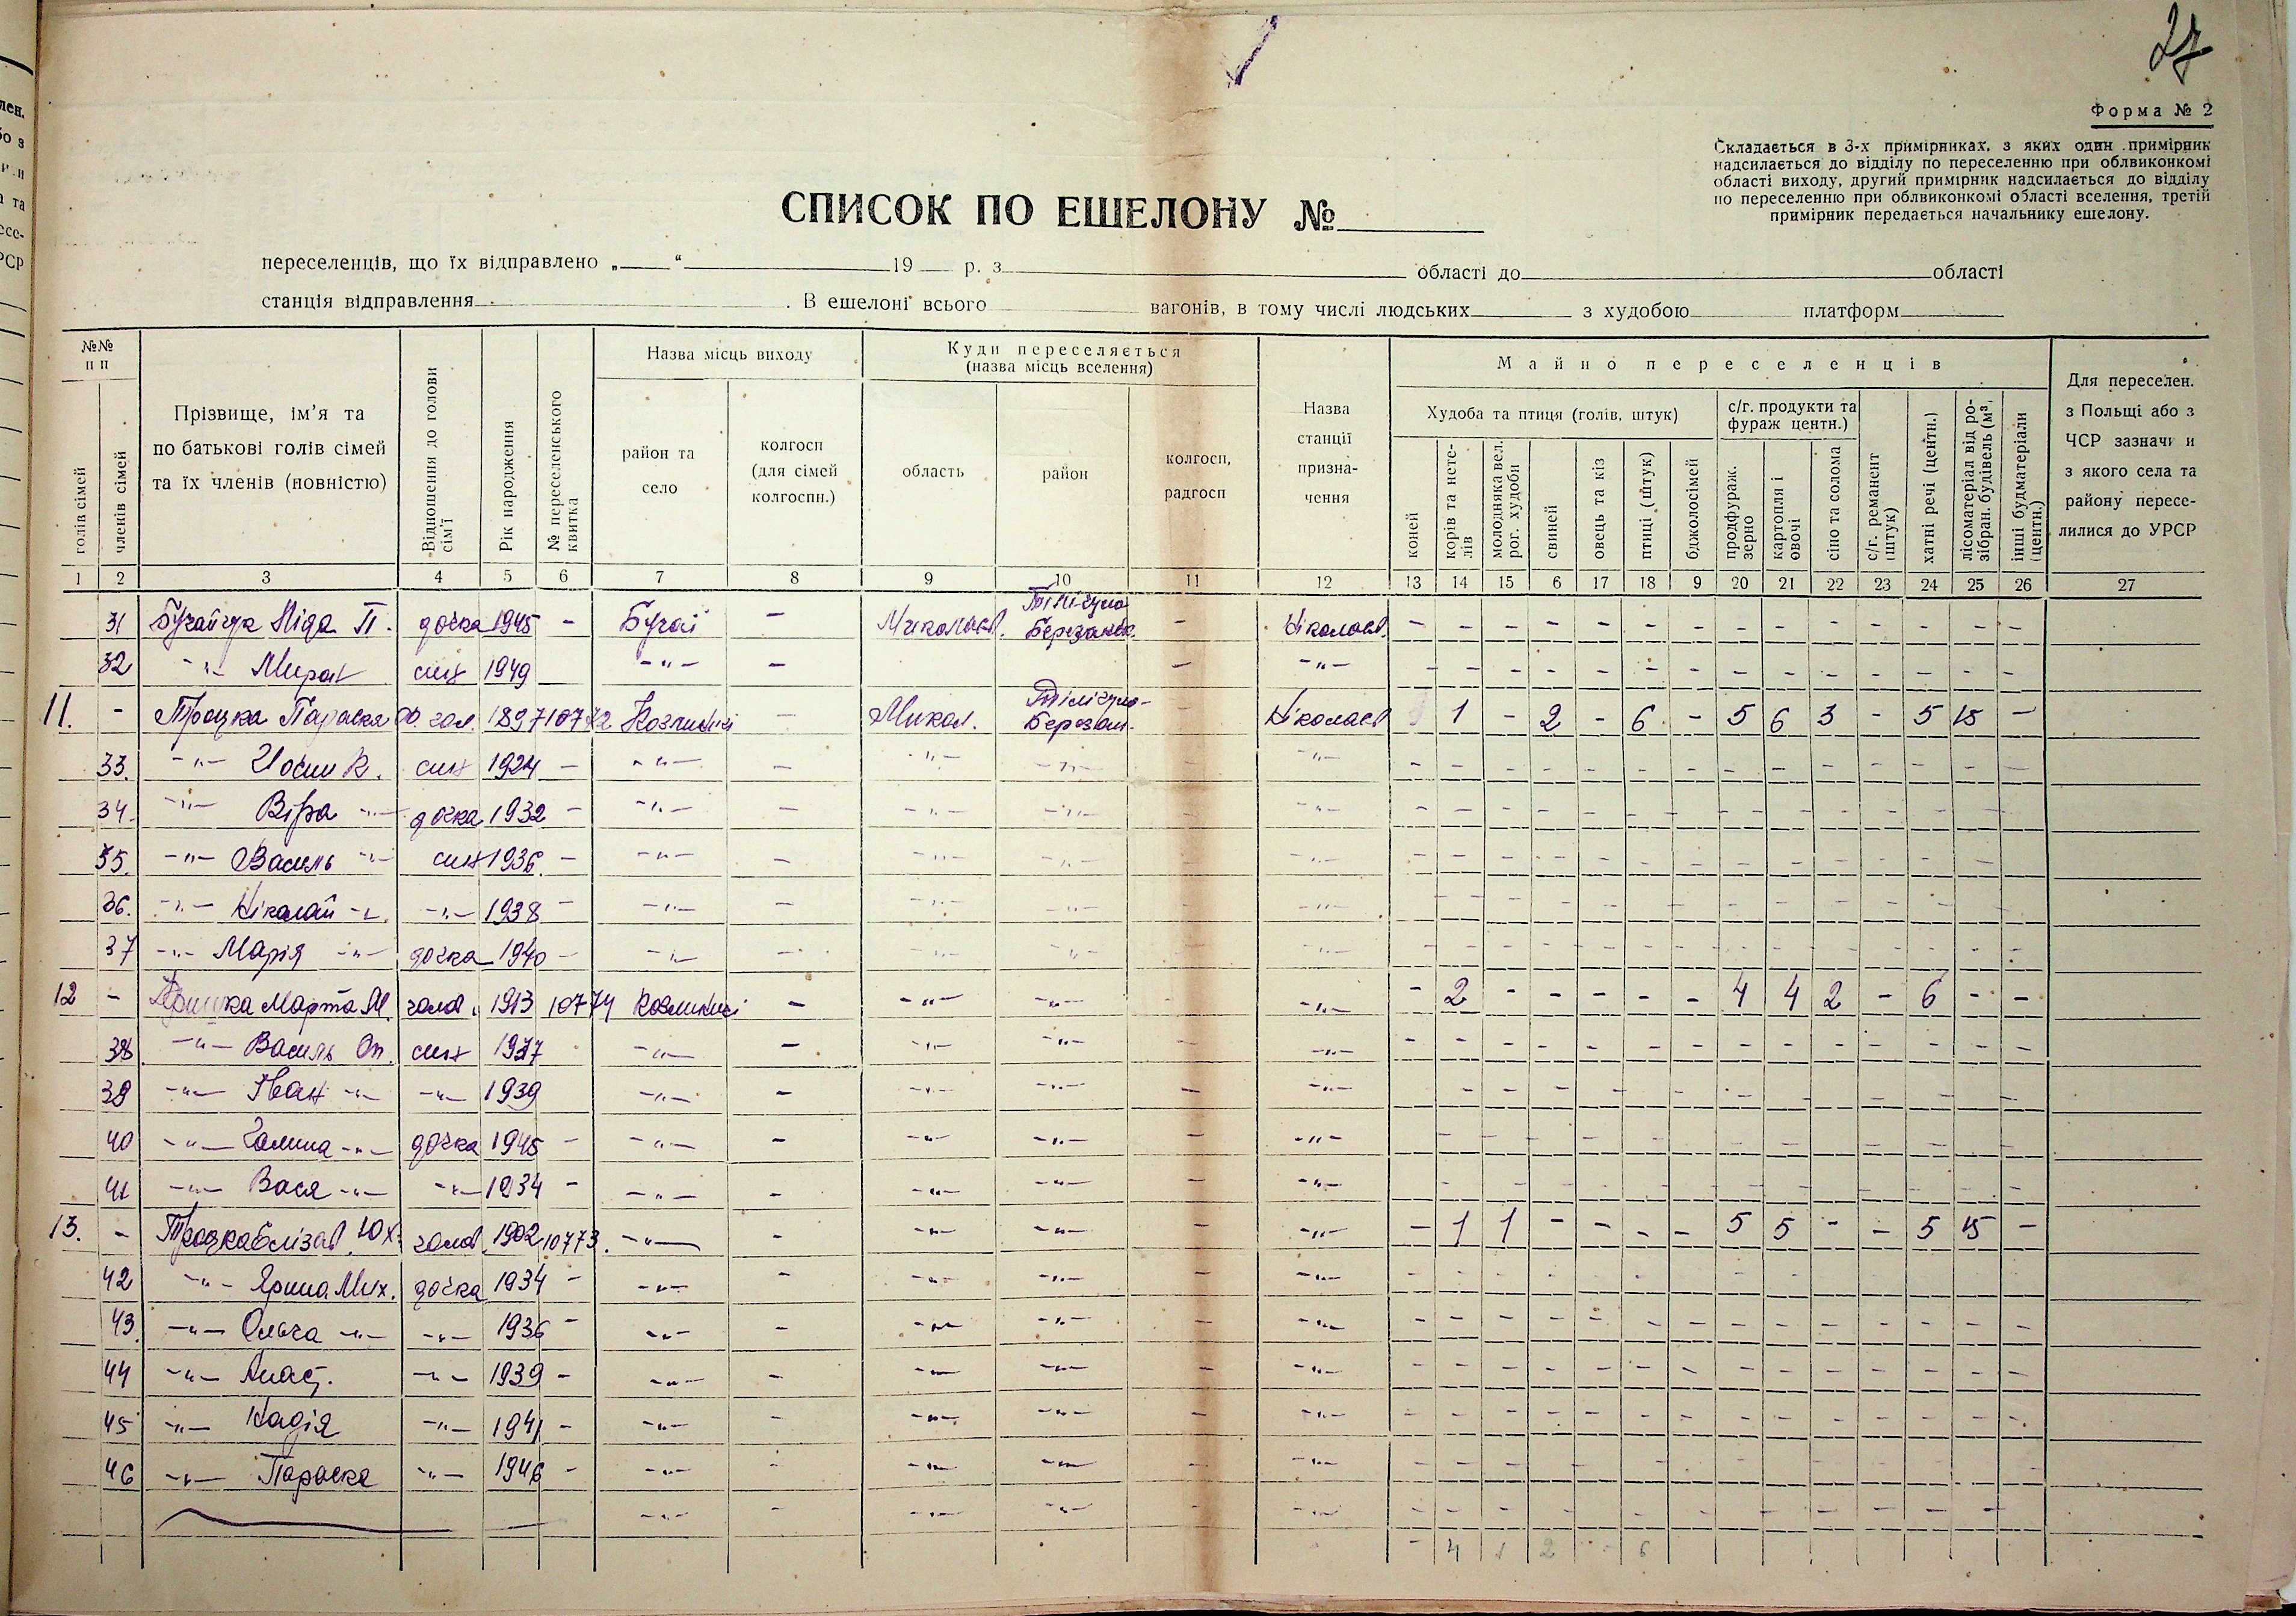 27
Форма № 2
Складається в 3-х примірниках, з яких один примірник
надсилається до відділу по переселенню при облвиконкомі
області виходу, другий примірник надсилається до відділу
по переселенню при облвиконкомі області вселення, третій
примірник передається начальнику ешелону.
СПИСОК ПО ЕШЕЛОНУ №
переселенців, що їх відправлено „ “ 19 р. з області до області
станція відправлення . В ешелоні всього вагонів, в тому числі людських з худобою платформ
№№ п п
голів сімей
членів сімей
Прізвище, ім’я та
по батькові голів сімей
та їх членів (повністю)
Відношення до голови сім’ї
Рік народження
№ переселенського квитка
Назва місць виходу
район та село
колгосп (для сімей колгоспн.)
Куди переселяється
(назва місць вселення)
область
район
колгосп, радгосп
Назва станції призна-чення
Майно переселенців
Худоба та птиця (голів, штук)
коней
корів та нете-лів
молодняка вел. рог. худоби
свиней
овець та кіз
птиці (штук)
бджолосімей
с/г. продукти та фураж центн.)
продфураж. зерно
картопля і овочі
сіно та солома
с/г. реманент (штук)
хатні речі (центн.)
лісоматеріал від ро-зібран. будівель (м³,
інші будматеріали (центн.)
Для переселен.
з Польщі або з
ЧСР зазначи и
з якого села та
району пересе-
лилися до УРСР
1 2 3 4 5 6 7 8 9 10 11 12 13 14 15 6 17 18 9 20 21 22 23 24 25 26 27
31 Бучайчук Ліда П. дочка 1945 - Бучаї - Миколаєв. Березанск. - Ніколаєв. - - - - - - - - - - - - - -
32 -"- Мирон син 1949 -"- - - -"- - - - - - - - - - - - - -
11. - Троцка Параска 1897 10772 - Микол. Березан. - Ніколаєв 1 - 2 - 6 - 5 6 3 - 5 15 -
33. -"- Йосип К. син 1924 - -"- - -"- -"- - -"-
34. -"- Віра -"- дочка 1932 - -"- - -"- -"- - -"-
35. -"- Василь -"- син 1936 - -"- - -"- -"- - -"-
36. -"- Ніколай -"- -"- 1938 - -"- - -"- -"- - -"-
37 -"- Марія -"- дочка 1940 - -"- - -"- -"- - -"-
12 - Марта М. голов. 1913 10774 - -"- -"- - -"- - 2 - - - - - 4 4 2 - 6 - -
38 -"- Василь Оп. син 1937 -"- - -"- -"- - -"-
39 -"- Іван -"- -"- 1939 -"- - -"- -"- - -"-
40 -"- Галина -"- дочка 1945 - -"- - -"- -"- - -"-
41 -"- Вася -"- -"- 1934 - -"- - -"- -"- - -"-
13. - Троцка Єлізав. Юх. голов. 1902 10773. -"- - -"- -"- - -"- - 1 1 - - - - 5 5 - - 5 15 -
42 -"- Ярина Мих. дочка 1934 - -"- - -"- -"- - -"-
43. -"- Ольга -"- -"- 1936 - -"- - -"- -"- - -"-
44 -"- Анас. -"- 1939 - -"- - -"- -"- - -"-
45 -"- Надія -"- 1941 - -"- - -"- -"- - -"-
46 -"- Параска -"- 1946 - -"- - -"- -"- - -"-
-"- - -"- -"- - -"-
- 4 1 2 - 6